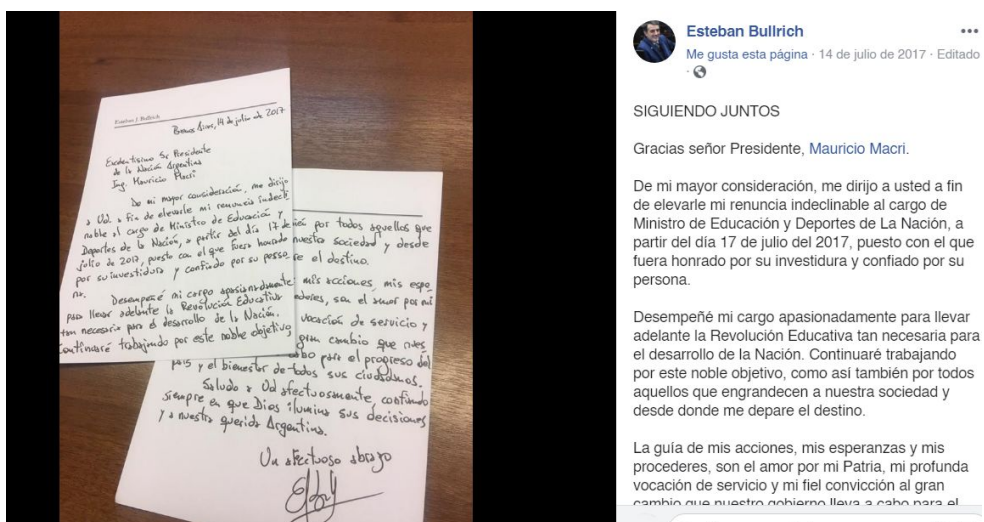 Esteban J. Bullrich
Buenos Aires, 14 de julio de 2017
Excelentísimo Sr Presidente
de la Nación Argentina
Ing. Mauricio Macri
De mi mayor consideración, me dirijo
a Ud. a fin de elevarle mi renuncia indecli
nable al cargo de Ministro de Educación y
Deportes de la Nación, a partir del día 17 de
julio de 2017, puesto con el que fuera honrado
por su investidura y confiado por su perso
na.
Desempeñé mi cargo apasionadamente
para llevar adelante la Revolución Educativa
tan necesaria para el desarrollo de la Nación.
Continuaré trabajando por este noble objetivo,
por todos aquellos que
nuestra sociedad y desde
re el destino.
mis acciones, mis espe
son el amor por mi
vocación de servicio y
gran cambio que nues
cabo para el progreso del
país y el bienestar de todos sus ciudadanos.
Saludo a Ud afectuosamente, confiando
siempre en que Dios ilumine sus decisiones
y a nuestra querida Argentina.
Un afectuoso abrazo
Esteban Bullrich
Me gusta esta página · 14 de julio de 2017 · Editado
SIGUIENDO JUNTOS
Gracias señor Presidente, Mauricio Macri.
De mi mayor consideración, me dirijo a usted a fin
de elevarle mi renuncia indeclinable al cargo de
Ministro de Educación y Deportes de La Nación, a
partir del día 17 de julio del 2017, puesto con el que
fuera honrado por su investidura y confiado por su
persona.
Desempeñé mi cargo apasionadamente para llevar
adelante la Revolución Educativa tan necesaria para
el desarrollo de la Nación. Continuaré trabajando
por este noble objetivo, como así también por todos
aquellos que engrandecen a nuestra sociedad y
desde donde me depare el destino.
La guía de mis acciones, mis esperanzas y mis
procederes, son el amor por mi Patria, mi profunda
vocación de servicio y mi fiel convicción al gran
cambio que nuestro gobierno lleva a cabo para el